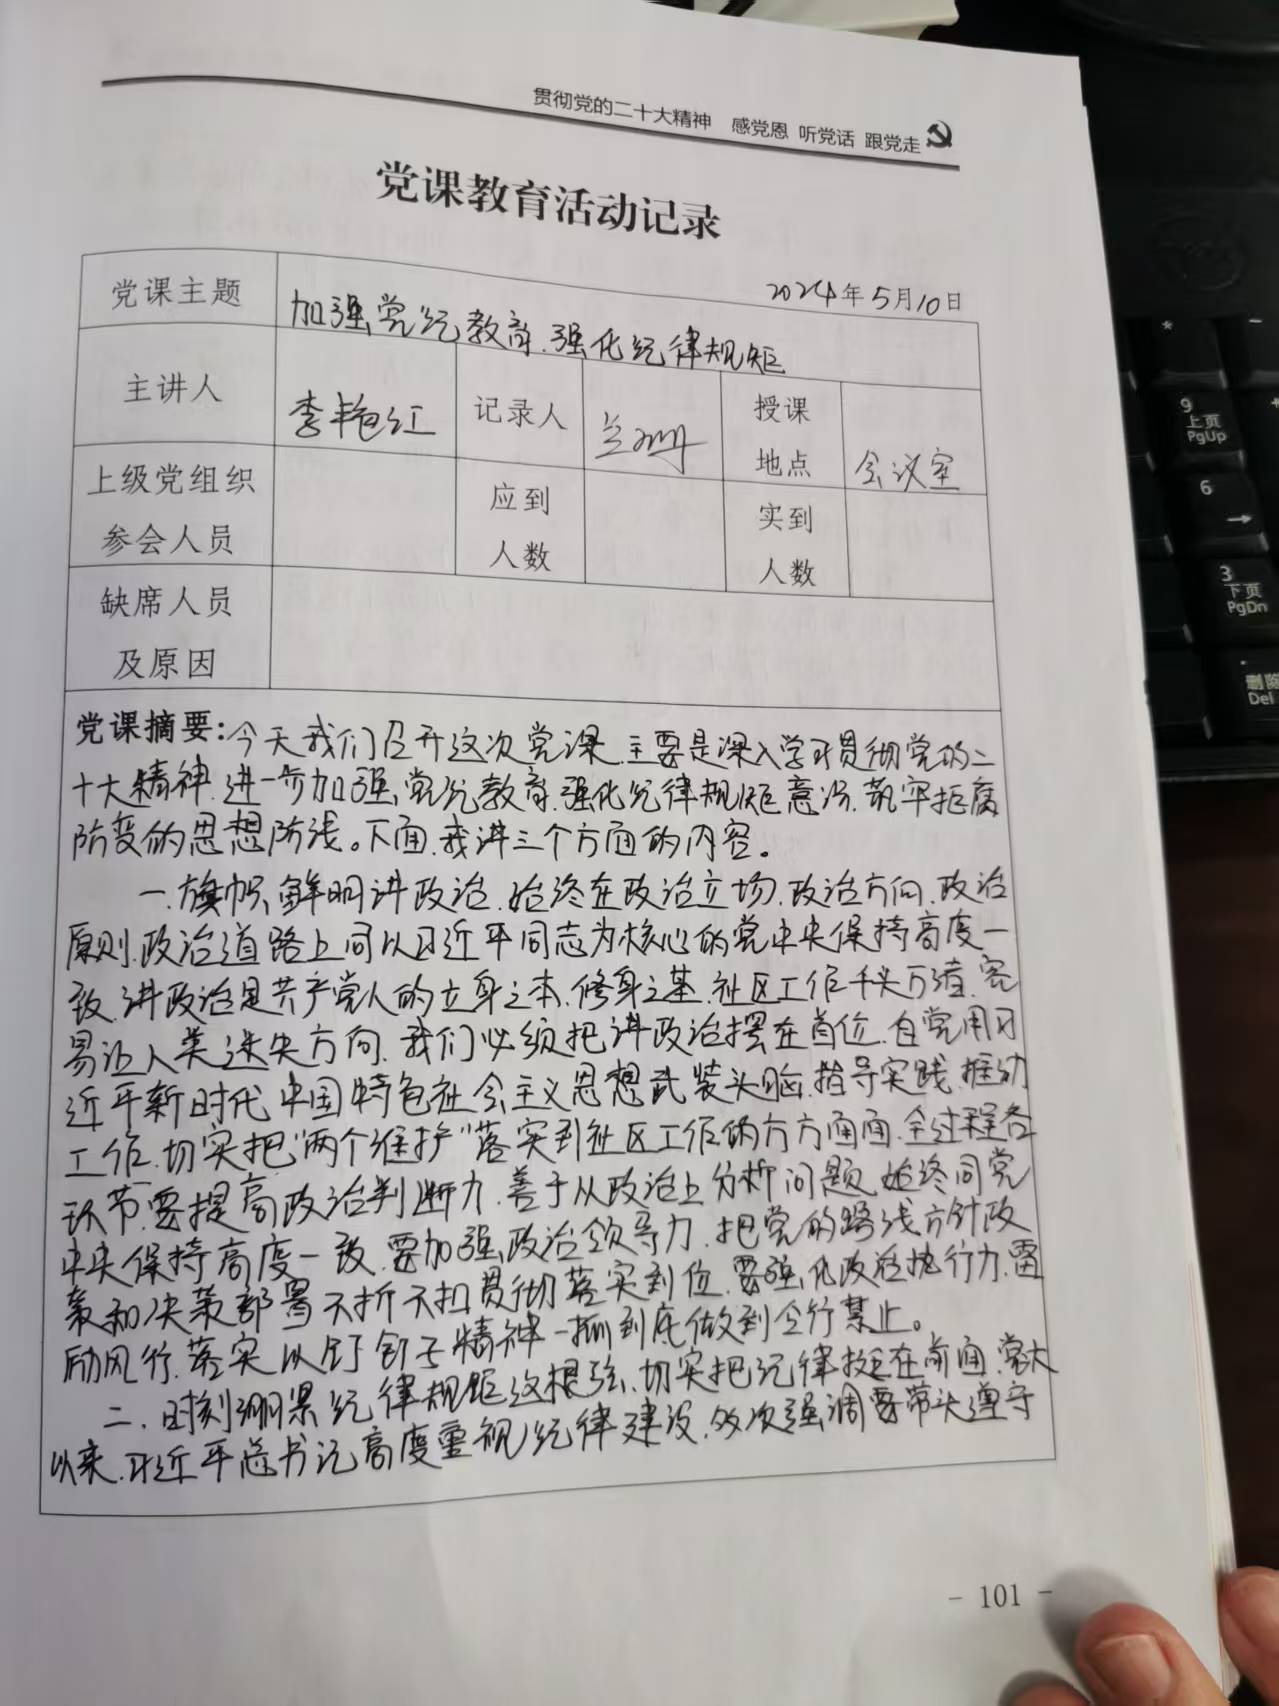 贯彻党的二十大精神 感党恩 听党话 跟党走
党课教育活动记录
2024年5月10日
党课主题 加强党纪教育、强化纪律规矩
主讲人 李艳红 记录人 授课地点 会议室
上级党组织参会人员 应到人数 实到人数
缺席人员及原因
党课摘要：今天我们召开这次党课，主要是深入学习贯彻党的二
十大精神，进一步加强党纪教育，强化纪律规矩意识，筑牢拒腐
防变的思想防线。下面，我讲三个方面的内容。
一、旗帜鲜明讲政治，始终在政治立场、政治方向、政治
原则、政治道路上同以习近平同志为核心的党中央保持高度一
致，讲政治是共产党人的立身之本，修身之基，社区工作千头万绪，容
易让人类迷失方向，我们必须把讲政治摆在首位，自觉用习
近平新时代中国特色社会主义思想武装头脑，指导实践，推动
工作，切实把“两个维护”落实到社区工作的方方面面，全过程各
环节，要提高政治判断力，善于从政治上分析问题，始终同党
中央保持高度一致，要加强政治领导力，把党的路线方针政
策和决策部署不折不扣贯彻落实到位，要强化政治执行力，雷
励风行，落实以钉钉子精神一抓到底做到令行禁止。
二、时刻绷紧纪律规距这根弦，切实把纪律挺在前面，党大
以来，习近平总书记高度重视纪律建设，多次强调要带头遵守
- 101 -
9
上页
PgUp
6
3
下页
PgDn
删除
Del